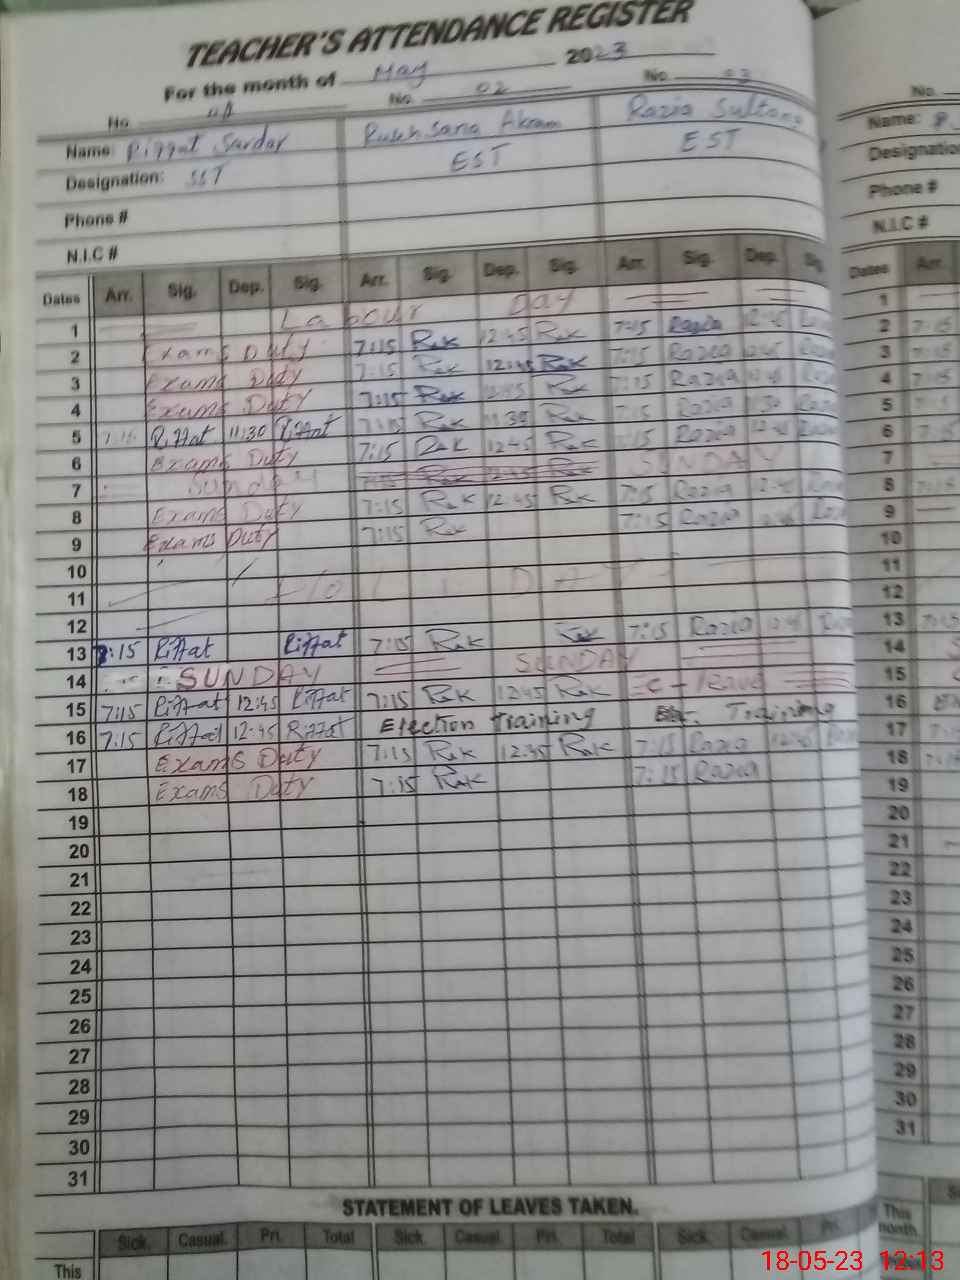 TEACHER'S ATTENDANCE REGISTER
For the month of May 2023
No. No. 02 No. 03 No.
Name: Riffat Sardar Rukhsana Akram Razia Sultana Name:
Designation: SST EST EST Designation
Phone # Phone #
N.I.C # N.I.C #
Dates Arr. Sig. Dep. Sig. Arr. Sig. Dep. Sig. Arr. Sig. Dep. Sig Dates Arr.
1 Labour Day 1
2 Exams Duty 7:15 Rak 12:45 Rak 7:15 Razia 12:45 2 7:15
3 Exams Duty 7:15 Rak 12:45 Rak 7:15 Razia 12:45 3 7:15
4 Exams Duty 7:15 Rak 12:45 Rak 7:15 Razia 12:45 4 7:15
5 7:15 Riffat 11:30 Riffat 7:15 Rak 11:30 Rak 7:15 Razia 11:30 5 7:15
6 Exams Duty 7:15 Rak 12:45 Rak 7:15 Razia 12:45 6 7:15
7 Sunday 7:15 Rak 12:45 Rak SUNDAY 7
8 Exams Duty 7:15 Rak 12:45 Rak 7:15 Razia 12:45 8 7:15
9 Exams Duty 7:15 Rak 7:15 Razia 12:45 9
10 10
11 HOLIDAY 11
12 12
13 7:15 Riffat Riffat 7:15 Rak Rak 7:15 Razia 12:45 13 7:15
14 SUNDAY SUNDAY 14
15 7:15 Riffat 12:45 Riffat 7:15 Rak 12:45 Rak C-leave 15
16 7:15 Riffat 12:45 Riffat Election training Training 16
17 Exams Duty 7:15 Rak 12:45 Rak 7:15 Razia 12:45 17 7:15
18 Exams Duty 7:15 Rak 7:15 Razia 18 7:15
19 19
20 20
21 21
22 22
23 23
24 24
25 25
26 26
27 27
28 28
29 29
30 30
31 31
STATEMENT OF LEAVES TAKEN.
Sick. Casual. Pri. Total Sick. Casual. Pri. Total Sick. Casual. Pri. This month.
This
18-05-23 12:13